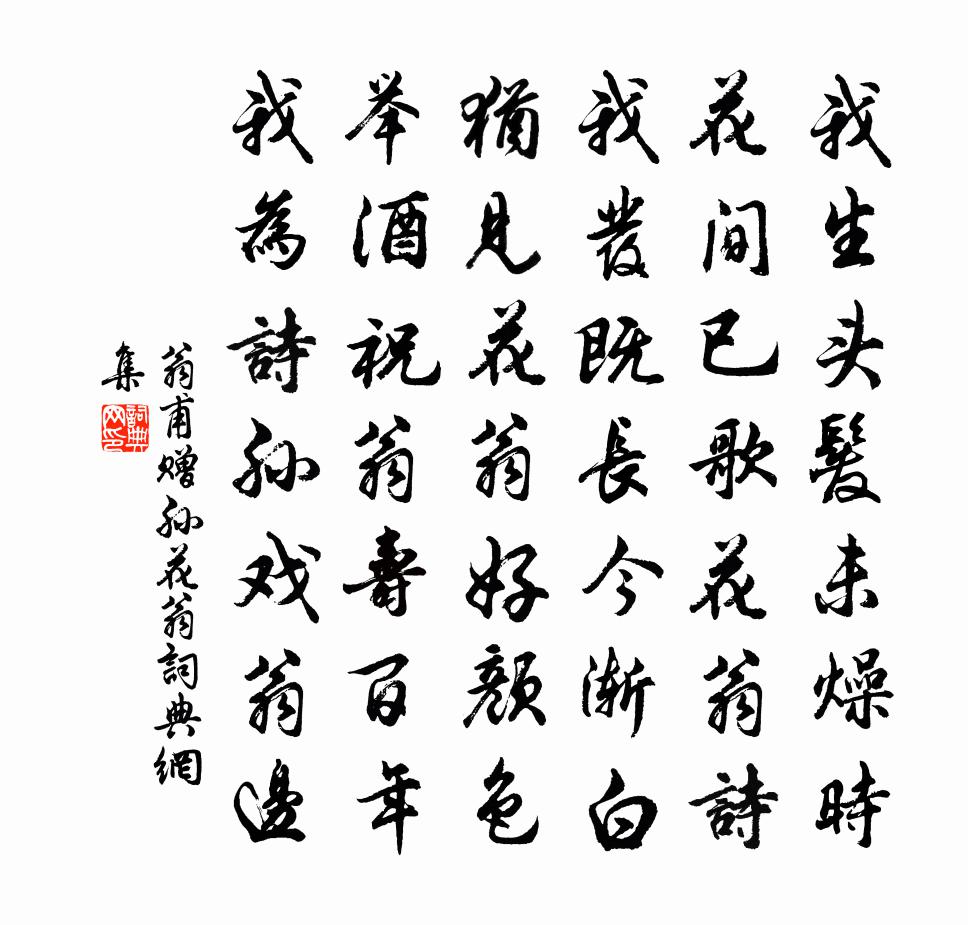 我生头髮未燥時
花间已歌花翁詩
我發既長今渐白
猶見花翁好顔色
举酒祝翁壽百年
我為詩孙戏翁邊
翁甫赠孙花翁詞典網
集
詞典
网印